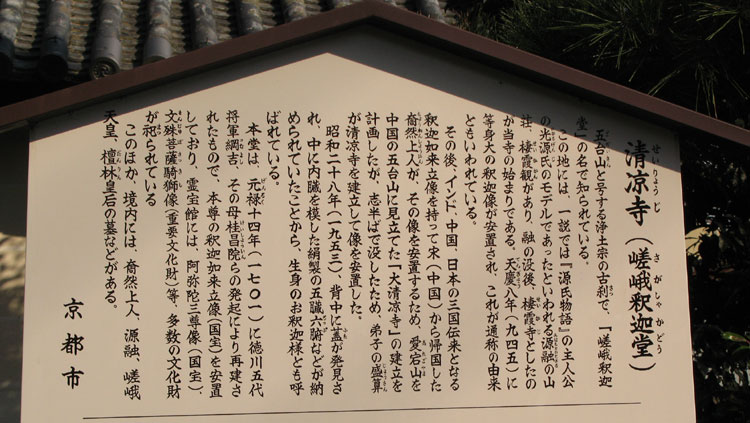 清凉寺（嵯峨釈迦堂）
五台山と号する浄土宗の古刹で、「嵯峨釈迦
堂」の名で知られている。
この地には、一説では『源氏物語』の主人公
の光源氏のモデルであったといわれる源融の山
荘、棲霞観があり、融の没後、棲霞寺としたの
が当寺の始まりである。天慶八年（九四五）に
等身大の釈迦像が安置され、これが通称の由来
ともいわれている。
その後、インド、中国、日本の三国伝来となる
釈迦如来立像を持って宋（中国）から帰国した
奝然上人が、その像を安置するため、愛宕山を
中国の五台山に見立てた「大清凉寺」の建立を
計画したが、志半ばで没したため、弟子の盛算
が清凉寺を建立して像を安置した。
昭和二十八年（一九五三）、背中に蓋が発見さ
れ、中に内臓を模した絹製の五臓六腑などが納
められていたことから、生身のお釈迦様とも呼
ばれている。
本堂は、元禄十四年（一七〇一）に徳川五代
将軍綱吉、その母桂昌院らの発起により再建さ
れたもので、本尊の釈迦如来立像（国宝）を安置
しており、霊宝館には、阿弥陀三尊像（国宝）、
文殊菩薩騎獅像（重要文化財）等、多数の文化財
が祀られている
このほか、境内には、奝然上人、源融、嵯峨
天皇、檀林皇后の墓などがある。
京都市